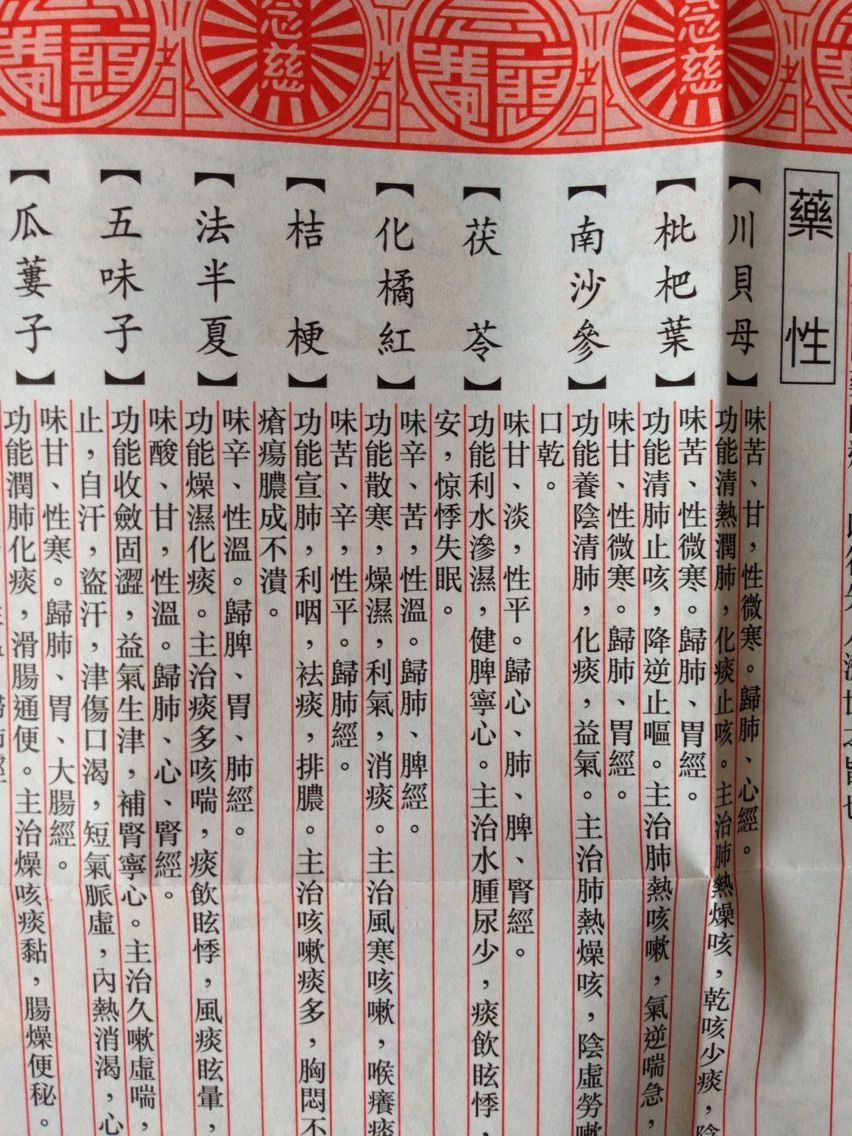 念慈
念慈
藥性
【川貝母】
味苦、甘，性微寒。歸肺、心經。
功能清熱潤肺，化痰止咳。主治肺熱燥咳，乾咳少痰，陰
【枇杷葉】
味苦、性微寒。歸肺、胃經。
功能清肺止咳，降逆止嘔。主治肺熱咳嗽，氣逆喘急，
【南沙參】
味甘、性微寒。歸肺、胃經。
功能養陰清肺，化痰，益氣。主治肺熱燥咳，陰虛勞嗽
口乾。
【茯苓】
味甘、淡，性平。歸心、肺、脾、腎經。
功能利水滲濕，健脾寧心。主治水腫尿少，痰飲眩悸，
安，惊悸失眠。
【化橘紅】
味辛、苦，性溫。歸肺、脾經。
功能散寒，燥濕，利氣，消痰。主治風寒咳嗽，喉癢痰
【桔梗】
味苦、辛，性平。歸肺經。
功能宣肺，利咽，袪痰，排膿。主治咳嗽痰多，胸悶不
瘡瘍膿成不潰。
【法半夏】
味辛、性溫。歸脾、胃、肺經。
功能燥濕化痰。主治痰多咳喘，痰飲眩悸，風痰眩暈，
【五味子】
味酸、甘，性溫。歸肺、心、腎經。
功能收斂固澀，益氣生津，補腎寧心。主治久嗽虛喘，
止，自汗，盜汗，津傷口渴，短氣脈虛，內熱消渴，心
【瓜蔞子】
味甘、性寒。歸肺、胃、大腸經。
功能潤肺化痰，滑腸通便。主治燥咳痰黏，腸燥便秘。